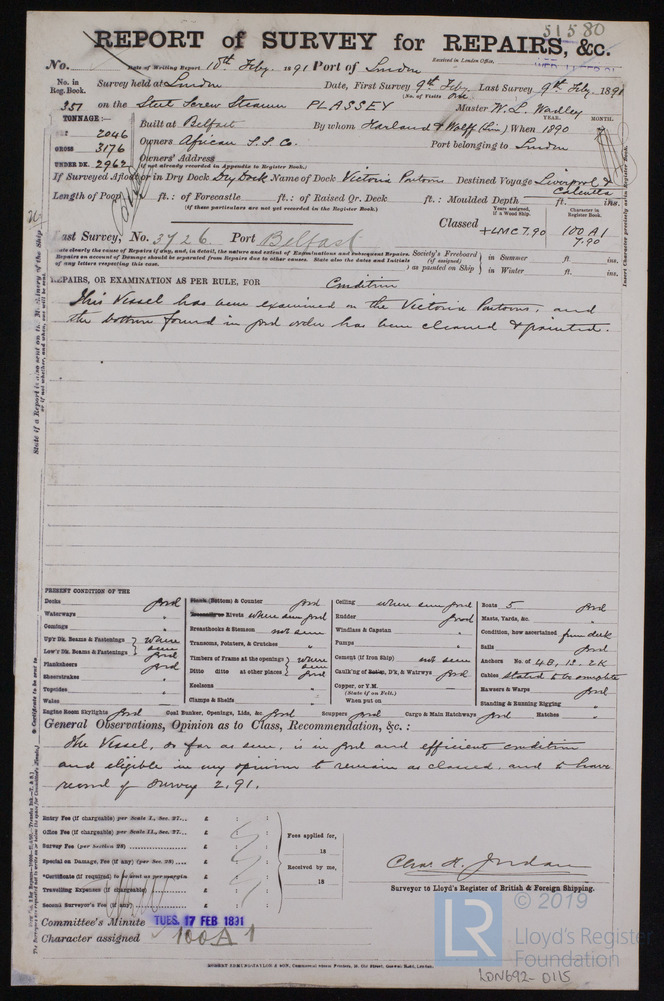 51580
REPORT of SURVEY for REPAIRS, &c.
No. Date of Writing Report 10th Feby. 1891 Port of London Received in London Office,
No. in Reg. Book. Survey held at London Date, First Survey 9th Feby. Last Survey 9th Feby. 1891
(No. of Visits One)
351 on the Steel Screw Steamer PLASSEY Master W. L. Wadley
TONNAGE:— YEAR. MONTH.
NET 2046 Built at Belfast By whom Harland & Wolff (Lim) When 1890
GROSS 3176 Owners African S.S. Co. Port belonging to London
UNDER DK. 2962 Owners' Address
(if not already recorded in Appendix to Register Book.)
If Surveyed Afloat or in Dry Dock Dry Dock Name of Dock Victoria Pontoons Destined Voyage Liverpool & Calcutta
Length of Poop ft.: of Forecastle ft.: of Raised Qr. Deck ft.: Moulded Depth ft. ins.
(if these particulars are not yet recorded in the Register Book.)
Years assigned, if a Wood Ship. Character in Register Book.
Classed +LMC 7,90 100 A1 7.90
Last Survey, No. 3726 Port Belfast
State clearly the cause of Repairs if any, and, in detail, the nature and extent of Examinations and subsequent Repairs.
Repairs on account of Damage should be separated from Repairs due to other causes. State also the dates and Initials
of any letters respecting this case.
Society's Freeboard (if assigned) as painted on Ship } in Summer ft. ins.
in Winter ft. ins.
REPAIRS, OR EXAMINATION AS PER RULE, FOR Condition
This Vessel has been examined on the Victoria Pontoons, and
the bottom found in good order has been cleaned & painted.
PRESENT CONDITION OF THE
Decks good
Waterways "
Comings "
Up'r Dk. Beams & Fastenings } where
Low'r Dk. Beams & Fastenings } seen good
Planksheers good
Sheerstrakes "
Topsides "
Wales "
(Bottom) & Counter good
Rivets where seen good
Breasthooks & Stemson not seen
Transoms, Pointers, & Crutches "
Timbers of Frame at the openings } where
Ditto ditto at other places } seen good
Keelsons "
Clamps & Shelfs "
Ceiling where seen good
Rudder good
Windlass & Capstan "
Pumps "
Cement (if Iron Ship) not seen
Caulk'ng of D'k, & Watrwys good
Copper, or Y.M.
(State if on Felt.)
When put on
Boats 5 good
Masts, Yards, &c. "
Condition, how ascertained from deck
Sails good
Anchors No. of 4B, 1S. 2K
Cables stated to be complete
Hawsers & Warps good
Standing & Running Rigging "
Engine Room Skylights good Coal Bunker, Openings, Lids, &c. good Scuppers good Cargo & Main Hatchways good Hatches "
General Observations, Opinion as to Class, Recommendation, &c.:
The Vessel, so far as seen, is in good and efficient condition
and eligible in my opinion to remain as classed, and to have
record of Survey 2,91.
Entry Fee (if chargeable) per Scale I., Sec. 27... £ : :
Office Fee (if chargeable) per Scale II., Sec. 27... £ : :
Survey Fee (per Section 28) £ : :
Special on Damage, Fee (if any) (per Sec. 28) £ : :
*Certificate (if required) to be sent as per margin £ : :
Travelling Expenses (if chargeable) £ : :
Second Surveyor's Fee (if any) £ : :
Fees applied for,
18
Received by me,
18
Chas. H. Jordan
Surveyor to Lloyd's Register of British & Foreign Shipping.
Committee's Minute TUES. 17 FEB 1891
Character assigned 100A1
© 2019
LR Lloyd's Register Foundation
LDN692-0115